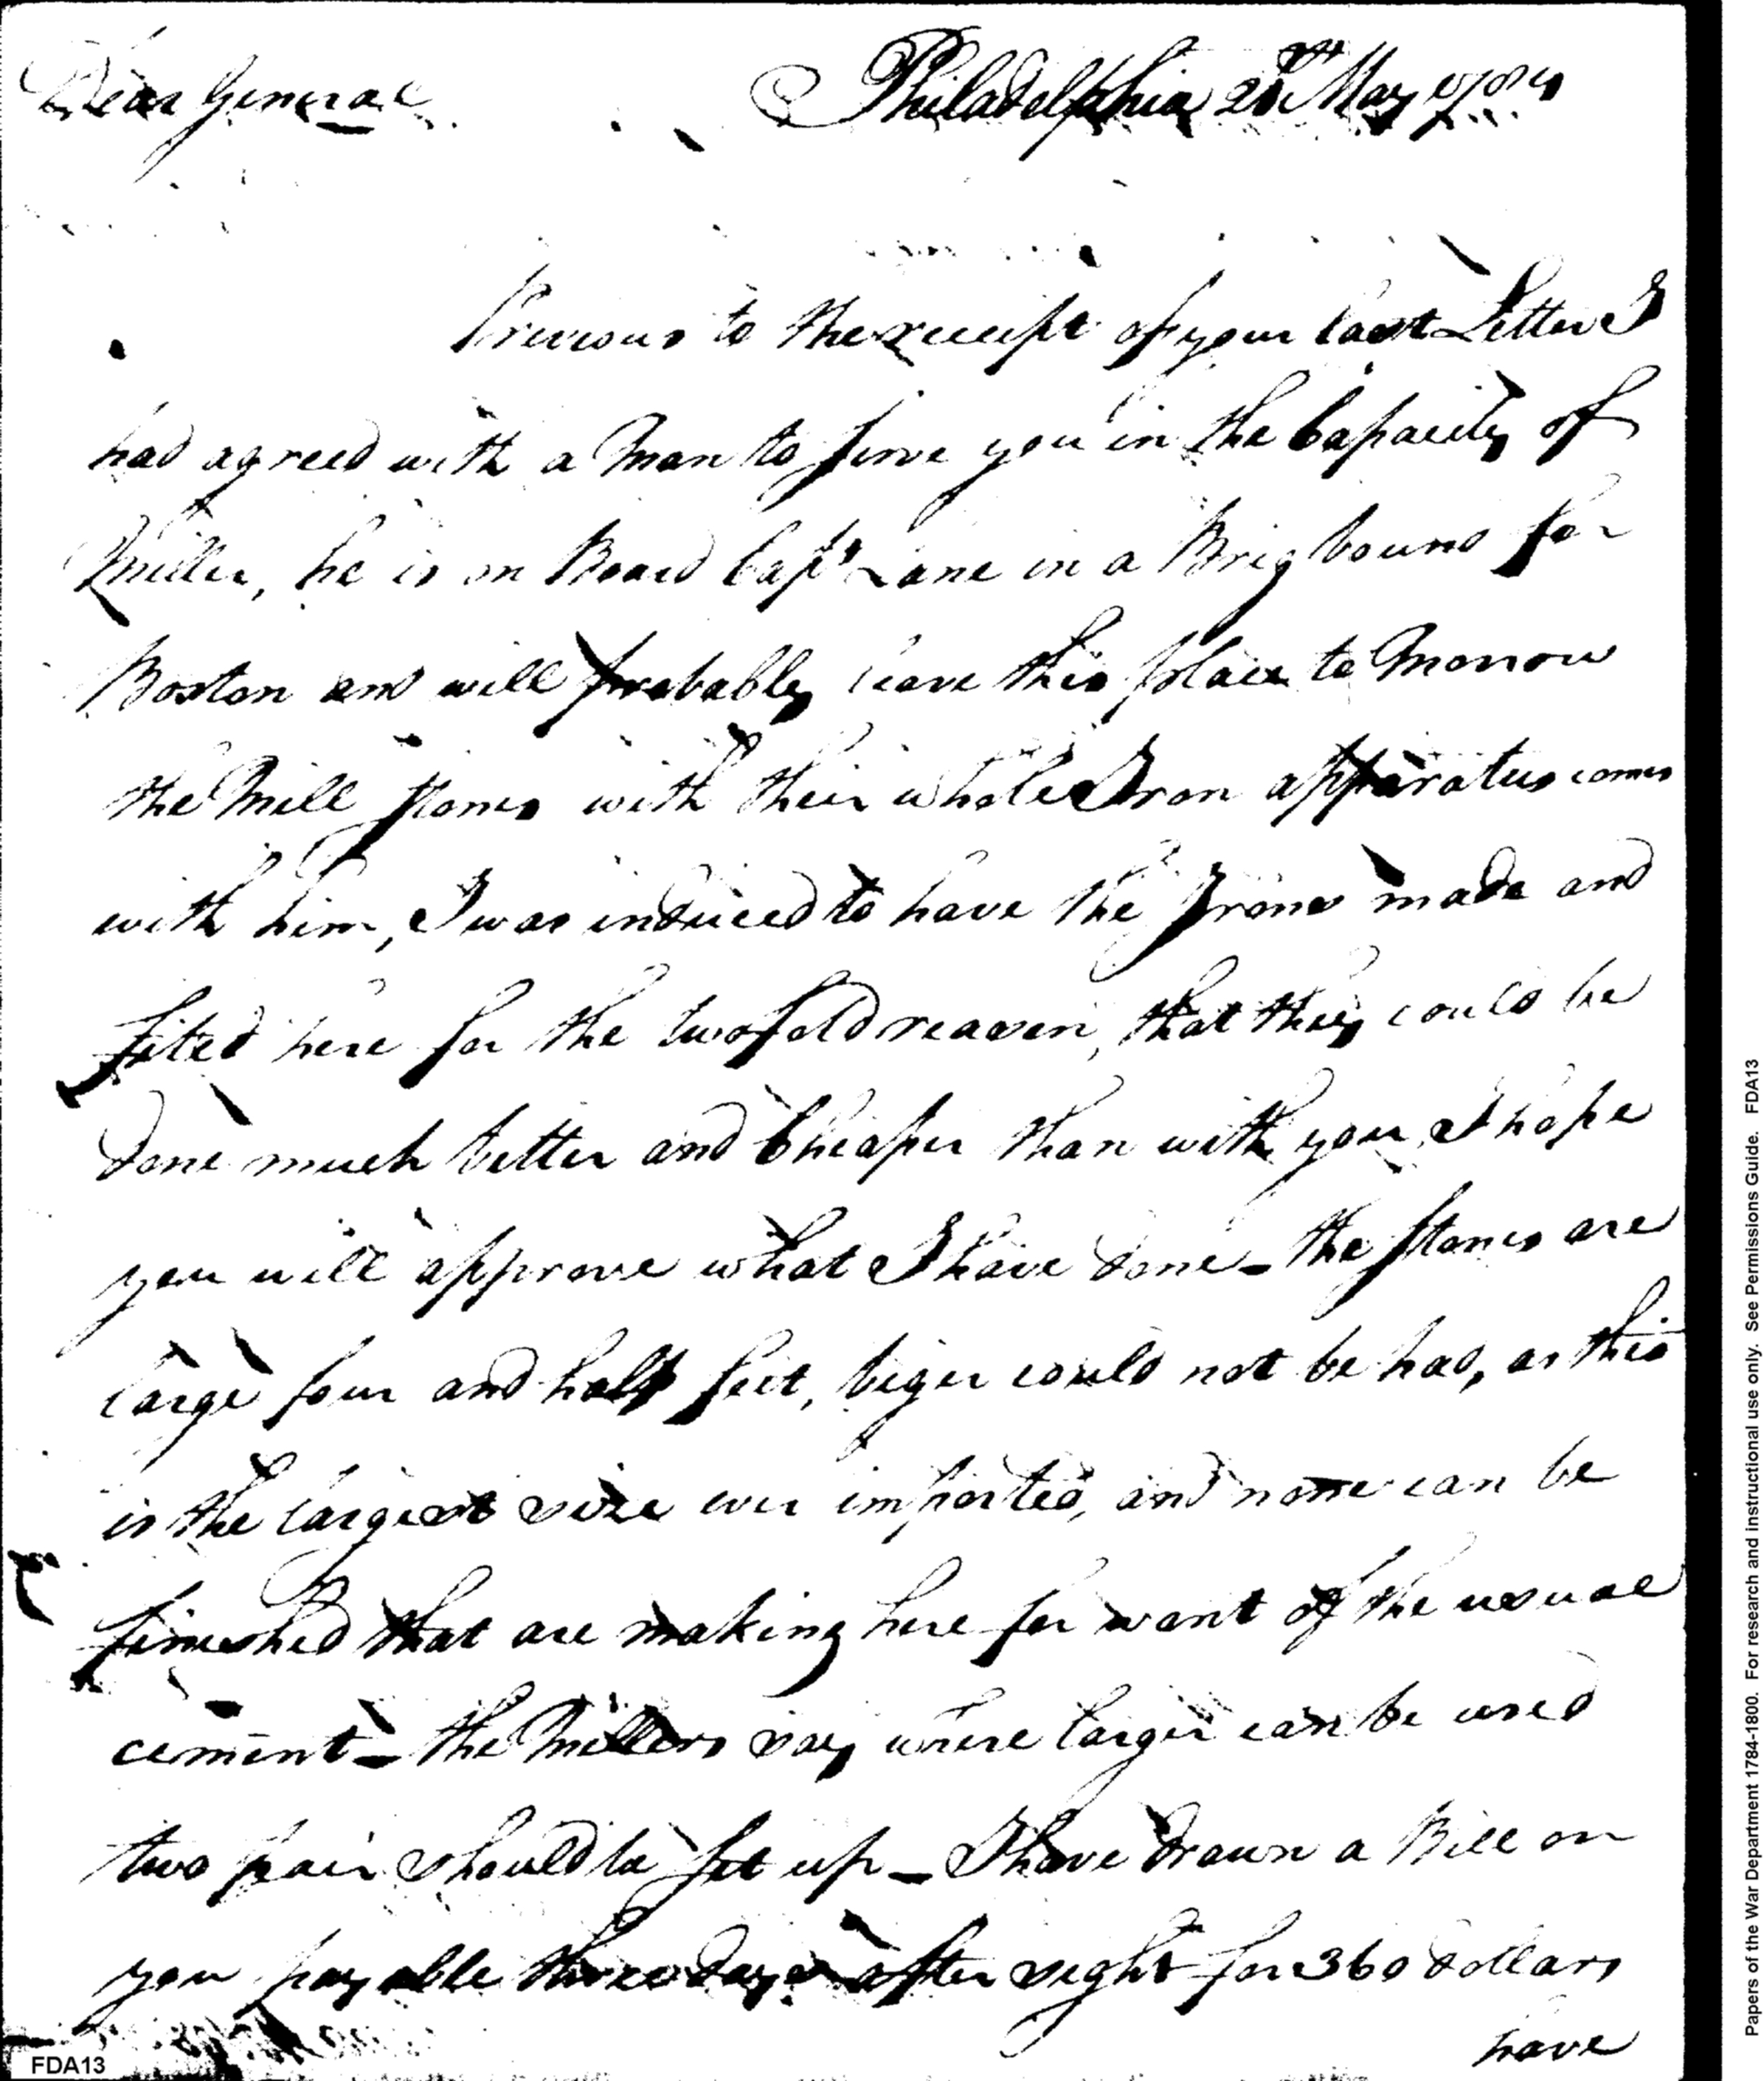 Dear General Philadelphia May
Previous to the receipt of your last Letter I
had agreed with a Man to serve you in the Capacity of
Miller, he is on Board Capt Lane in a Brig bound for
Boston and will probably leave this place to Morrow
the Mill stones with their whole Iron apparatus comes
with him, I was induced to have the Irons made and
fited here for the twofold reason, that they could be
done much better and Cheaper than with you, I hope
you will approve what I have done – the stones are
large four and half feet, biger could not be had, as this
is the largest size ever imported, and none can be
finished that are making here for want of the usual
cement – the Millers say where larger can be used
two pair should be set up – I have drawn a Bill on
you payable three days after sight for 360 dollars
have
FDA13
Papers of the War Department 1784-1800. For research and instructional use only. See Permissions Guide. FDA13